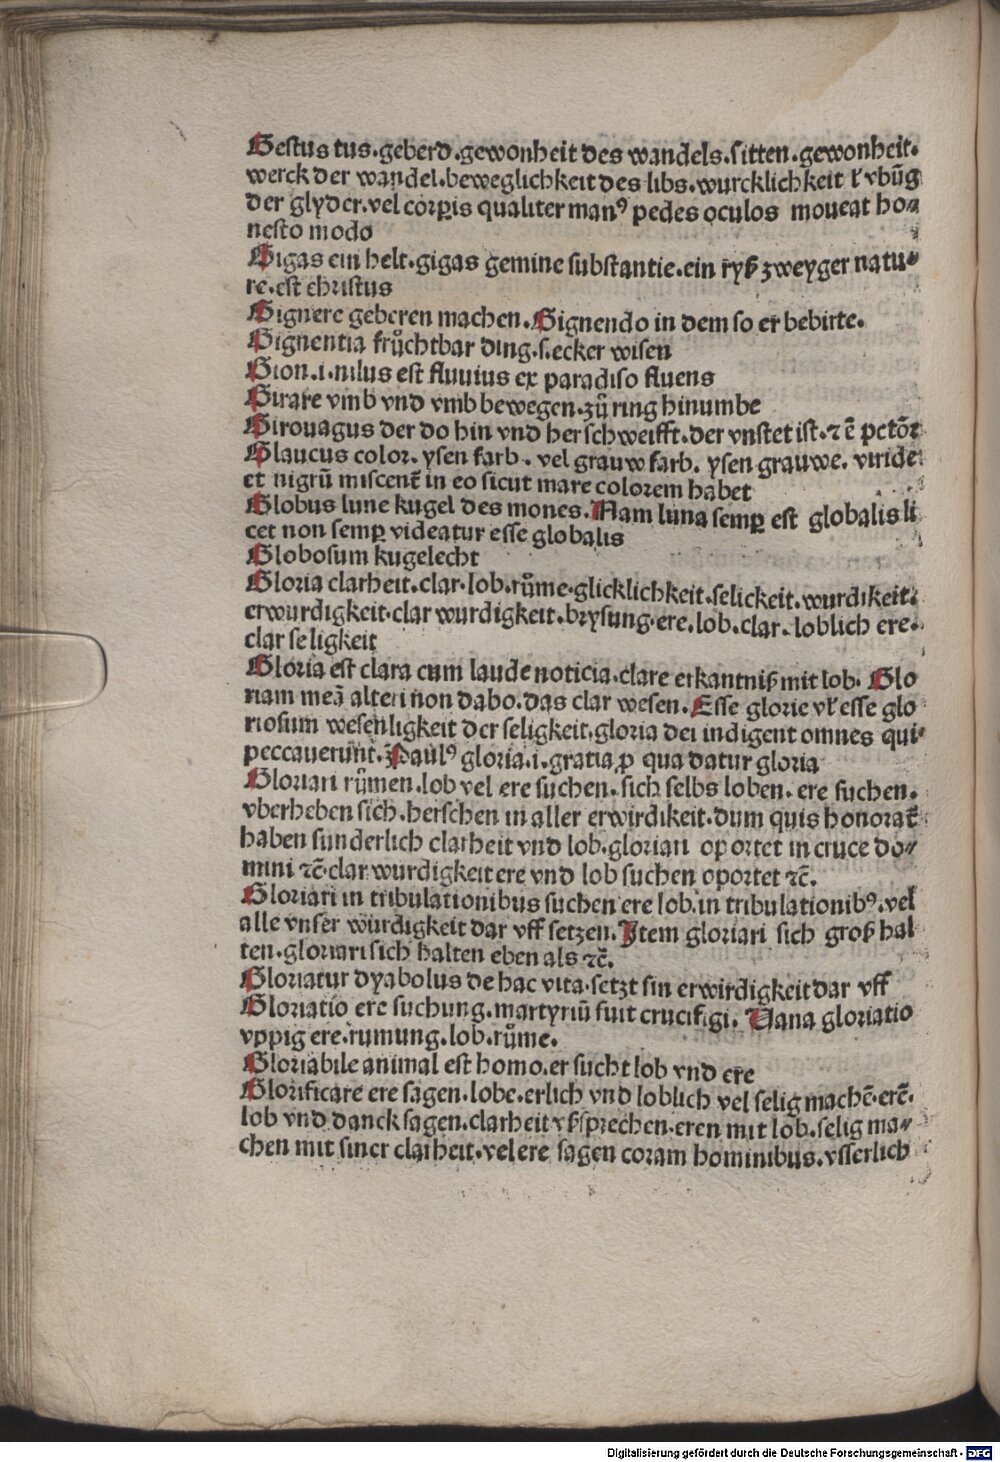 Gestus tus.geberd.gewonheit des wandels.sitten.gewonheit.
werck der wandel.beweglichkeit des libs.wurcklichkeit ł vbūg
der glyder.vel corꝑis qualiter manꝰ pedes oculos moueat ho⸗
nesto modo
Gigas ein helt.gigas gemine substantie.ein ryß zweyger natu⸗
re.est christus
Gignere geberen machen.Gignendo in dem so er bebirte.
Gignentia frůchtbar ding.s.ecker wisen
Gion.i.nilus est fluuius ex paradiso fluens
Girare vmb vnd vmb bewegen.zů ring hinumbe
Girouagus der do hin vnd her schweifft.der vnstet ist.⁊ ē petōr
Glaucus color. ysen farb. vel grauw farb. ysen grauwe. viride
et nigrū miscent̄ in eo sicut mare colorem habet
Globus lune kugel des mones.Nam luna semꝑ est globalis li
cet non semꝑ videatur esse globalis
Globosum kugelecht
Gloria clarheit.clar.lob.růme.glicklichkeit.selickeit.wurdikeit.
erwurdigkeit.clar wurdigkeit.brysung.ere.lob.clar.loblich ere.
clar seligkeit
Gloria est clara cum laude noticia.clare erkantniß mit lob. Glo
riam meā alteri non dabo.das clar wesen.Esse glorie vł esse glo
riosum wesenligkeit der seligkeit.gloria dei indigent omnes qui
peccauerunt.Paulꝰ gloria.i.gratia ꝓ qua datur gloria
Gloriari růmen.lob vel ere suchen.sich selbs loben.ere suchen.
vberheben sich.herschen in aller erwirdikeit.dum quis honorat̄
haben sunderlich clarheit vnd lob.gloriari oportet in cruce do⸗
mini ⁊c̄.clar wurdigkeit ere vnd lob suchen oportet ⁊c̄.
Gloriari in tribulationibus suchen ere lob.in tribulationibꝰ.vel
alle vnser würdigkeit dar vff setzen.Item gloriari sich groß hal
ten.gloriari sich halten eben als ⁊c̄.
Gloriatur dyabolus de hac vita.setzt sin erwirdigkeit dar vff
Gloriatio ere suchung.martyriū fuit crucifigi. Uana gloriatio
vppig ere.rumung.lob.růme.
Gloriabile animal est homo.er sucht lob vnd ere
Glorificare ere sagen.lobe.erlich vnd loblich vel selig machē.erē.
lob vnd danck sagen.clarheit vßsprechen.eren mit lob.selig ma⸗
chen mit siner clarheit.vel ere sagen coram hominibus.vsserlich
Digitalisierung gefördert durch die Deutsche Forschungsgemeinschaft - DFG